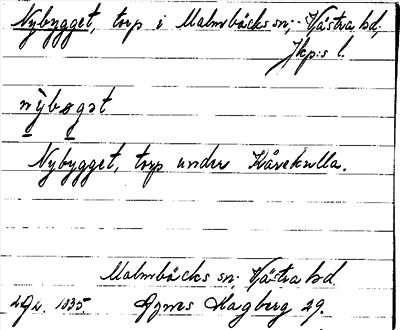 Nybygget, torp i Malmbäcks sn; Västra hd;
Jkp:s l.
nybøgət
Nybygget, torp under Kårekulla.
Malmbäcks sn; Västra hd.
Agnes Hagberg 29.